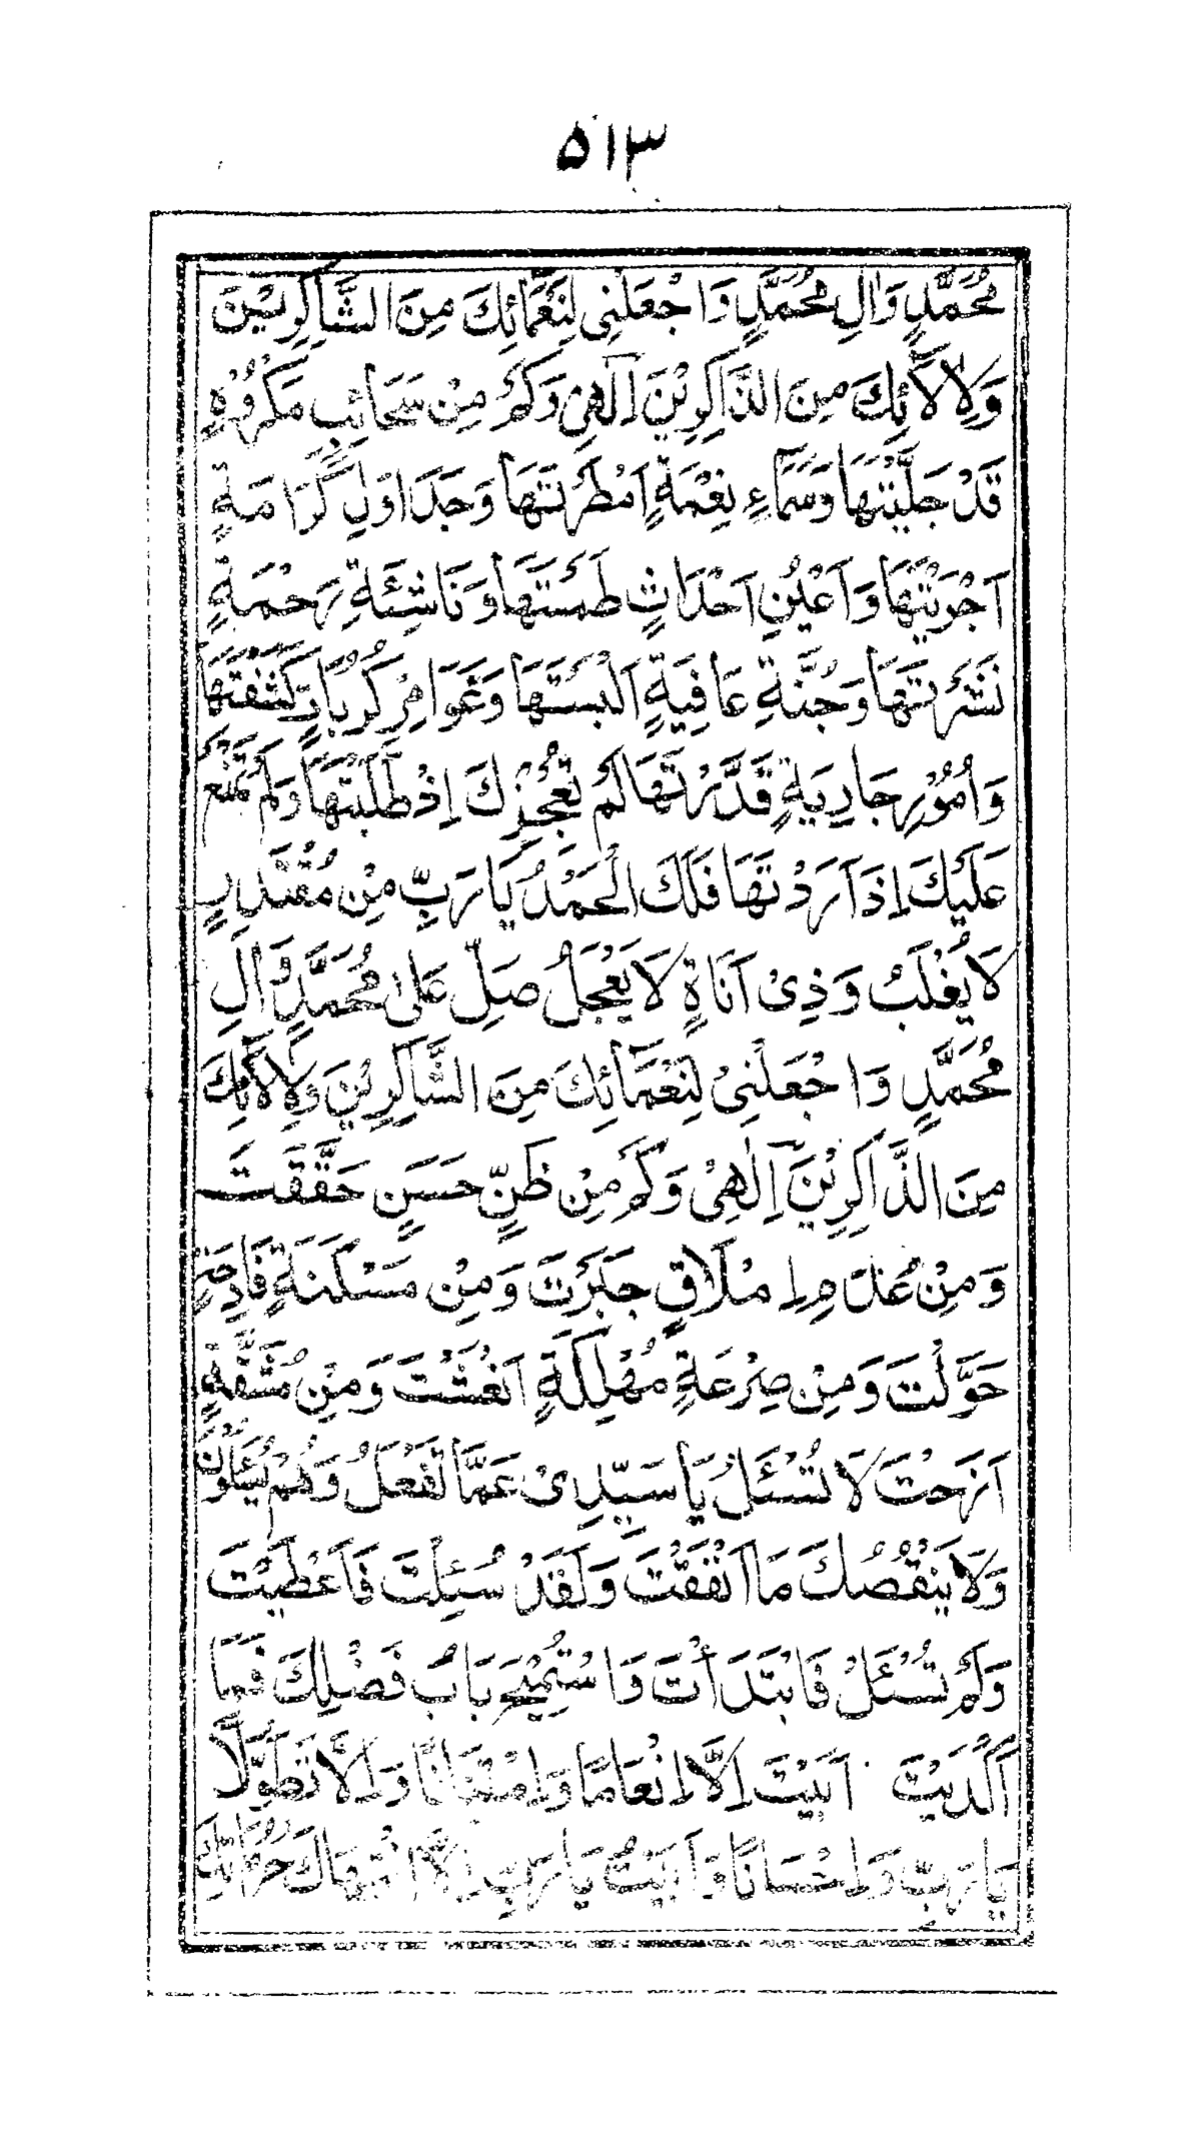 ٥١٣
مُحَمَّدٍ وَاٰلِ مُحَمَّدٍ وَاجْعَلْنِى لِنَعْمَآئِكَ مِنَ الشَّاكِرِيْنَ
وَلِاٰلَآئِكَ مِنَ الذَّاكِرِيْنَ اِلٰهِىْ وَكَمْ مِنْ سَحَائِبِ مَكْرُوْهٍ
قَدْ جَلَّيْتَهَا وَسَمَآءِ نِعْمَةٍ اَمْطَرْتَهَا وَجَدَاوِلِ كَرَامَةٍ
اَجْرَيْتَهَا وَاَعْيُنِ اَحْدَاثٍ طَمَسْتَهَا وَنَاشِئَةِ رَحْمَةٍ
نَشَرْتَهَا وَجُنَّةِ عَافِيَةٍ اَلْبَسْتَهَا وَغَوَامِرِ كُرُبَاتٍ كَشَفْتَهَا
وَاُمُوْرٍ جَارِيَةٍ قَدَّرْتَهَا لَمْ تُعْجِزْكَ اِذْ طَلَبْتَهَا وَلَمْ تَمْتَنِعْ
عَلَيْكَ اِذْ اَرَدْتَهَا فَلَكَ الْحَمْدُ يَا رَبِّ مِنْ مُقْتَدِرٍ
لَا يُغْلَبُ وَذِىْ اَنَاةٍ لَا يَعْجَلُ صَلِّ عَلٰى مُحَمَّدٍ وَّاٰلِ
مُحَمَّدٍ وَاجْعَلْنِىْ لِنَعْمَآئِكَ مِنَ الشَّاكِرِيْنَ وَلِاٰلَآئِكَ
مِنَ الذَّاكِرِيْنَ اِلٰهِىْ وَكَمْ مِنْ ظَنٍّ حَسَنٍ حَقَّقْتَ
وَمِنْ عُدْمِ اِمْلَاقٍ جَبَرْتَ وَمِنْ مَسْكَنَةٍ فَادِحَةٍ
حَوَّلْتَ وَمِنْ صِرْعَةٍ مُهْلِكَةٍ اَنْعَشْتَ وَمِنْ مَشَقَّةٍ
اَزَحْتَ لَا تُسْئَلُ يَا سَيِّدِىْ عَمَّا تَفْعَلُ وَهُمْ يُسْئَلُوْنَ
وَلَا يَنْقُصُكَ مَا اَنْفَقْتَ وَلَقَدْ سُئِلْتَ فَاَعْطَيْتَ
وَلَمْ تُسْئَلْ فَابْتَدَأْتَ وَاسْتُمِيْحَ بَابُ فَضْلِكَ فَمَا
اَكْدَيْتَ اَبَيْتَ اِلَّا اِنْعَامًا وَامْتِنَانًا وَاِلَّا تَطَوُّلًا
يَا رَبِّ وَاِحْسَانًا وَاَبَيْتُ يَا رَبِّ اِلَّا انْتِهَاكَ حُرُمَاتِكَ